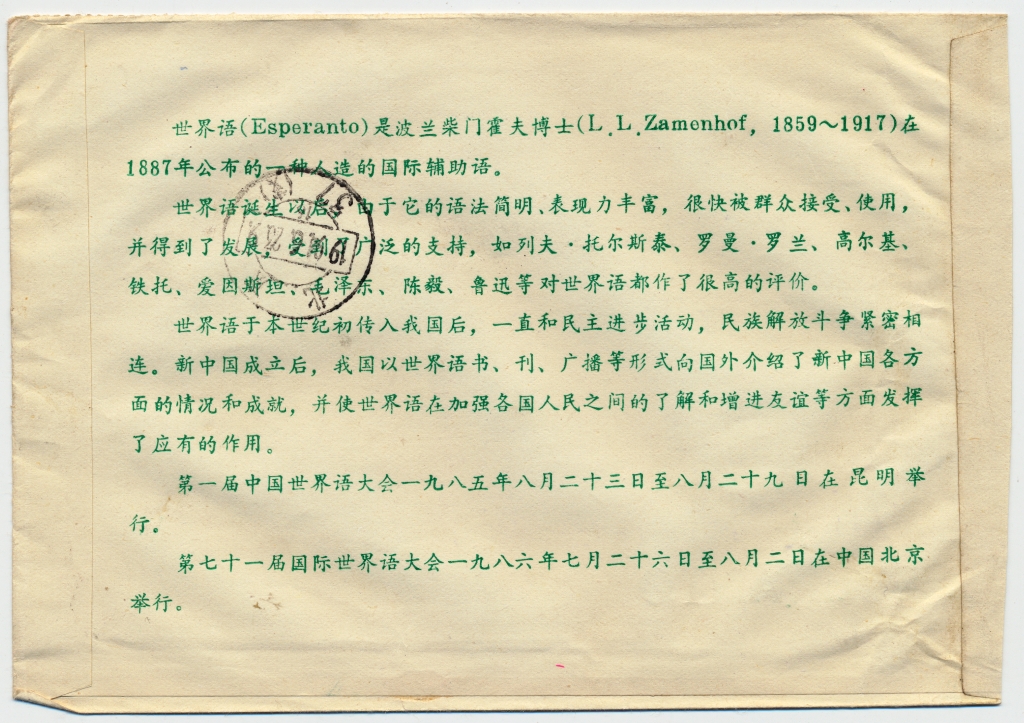 世界语(Esperanto)是波兰柴门霍夫博士(L.L.Zamenhof, 1859～1917)在
1887年公布的一种人造的国际辅助语。
世界语诞生以后,由于它的语法简明、表现力丰富,很快被群众接受、使用,
并得到了发展,受到了广泛的支持,如列夫·托尔斯泰、罗曼·罗兰、高尔基、
铁托、爱因斯坦、毛泽东、陈毅、鲁迅等对世界语都作了很高的评价。
世界语于本世纪初传入我国后,一直和民主进步活动,民族解放斗争紧密相
连。新中国成立后,我国以世界语书、刊、广播等形式向国外介绍了新中国各方
面的情况和成就,并使世界语在加强各国人民之间的了解和增进友谊等方面发挥
了应有的作用。
第一届中国世界语大会一九八五年八月二十三日至八月二十九日在昆明举
行。
第七十一届国际世界语大会一九八六年七月二十六日至八月二日在中国北京
举行。